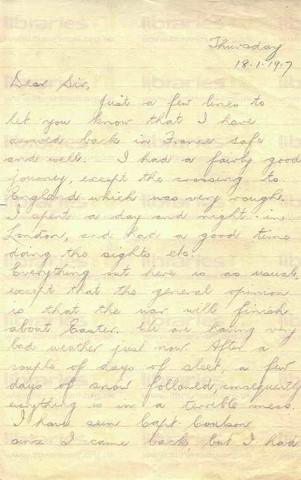 Thursday
18.1.1917
Dear Sir,
Just a few lines to
let you know that I have
arrived back in France safe
and well. I had a fairly good
journey, except the crossing to
England which was very rough.
I spent a day and night in
London, and had a good time
doing the sights etc.
Everything out here is as usual,
except that the general opinion
is that the war will finish
about Easter. We are having very
bad weather just now. After a
couple of days of sleet, a few
days of snow followed, consequently
everything is in a terrible mess.
I have seen Capt Coulson
since I came back, but I had